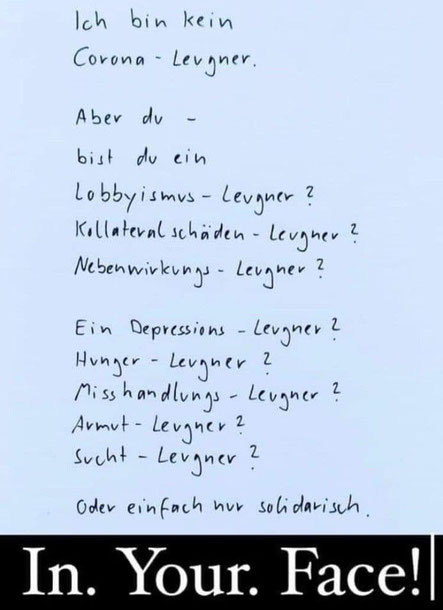 Ich bin kein
Corona - Leugner.
Aber du -
bist du ein
Lobbyismus - Leugner ?
Kollateralschäden - Leugner ?
Nebenwirkungs - Leugner ?
Ein Depressions - Leugner ?
Hunger - Leugner ?
Misshandlungs - Leugner ?
Armut - Leugner ?
Sucht - Leugner ?
Oder einfach nur solidarisch.
In. Your. Face!